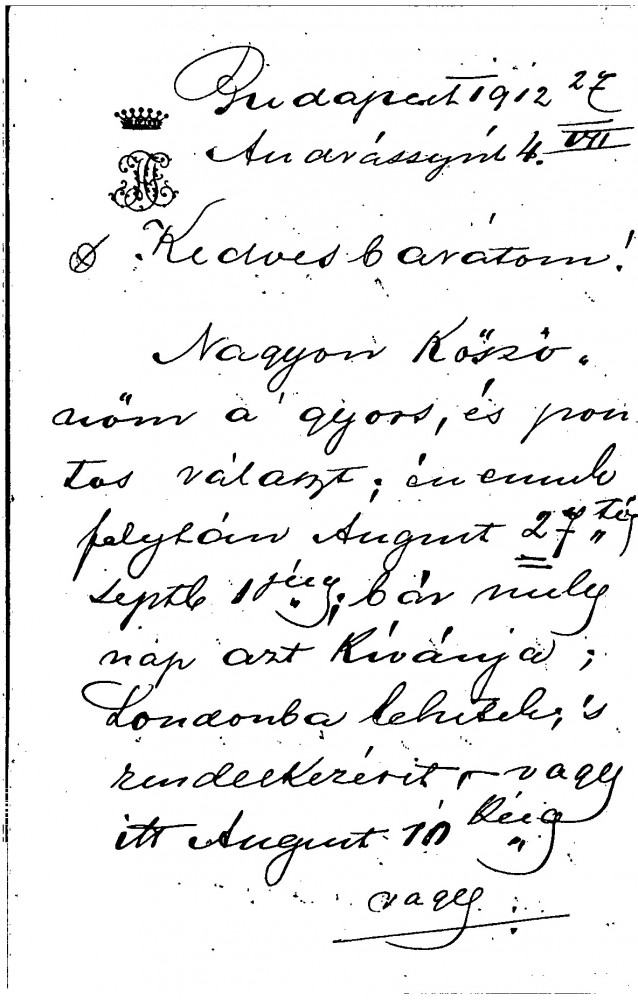 Budapest 1912 27
Andrássyút 4. VII
Kedves barátom!
Nagyon köszö„
nöm a gyors, és pon
tos választ; én ennek
folytán August 27„
septb 1 jéig; bár mely
nap azt kívánja;
Londonba lehetek, 's
vagy
itt August 10 kéig
vagy: